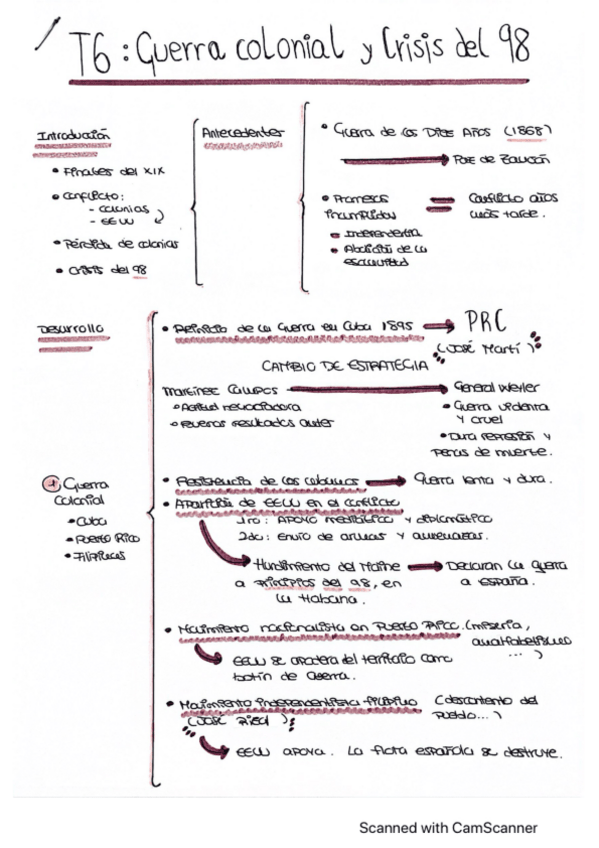 T6: Guerra colonial y Crisis del 98
Introducción
• Finales del XIX
• Conflicto:
- colonias
- EEUU
• Pérdida de colonias
• Crisis del 98
Antecedentes
• Guerra de los Diez Años (1868)
Paz de Zanjón
• Promesas
incumplidas
Independencia
Abolición de la
esclavitud
Conflicto años
más tarde.
Desarrollo
• Reinicio de la Guerra en Cuba 1895
PRC
(José Martí)
CAMBIO DE ESTRATEGIA
Martínez Campos
• Actitud negociadora
• Buenos resultados antes
General Weyler
• Guerra violenta
y cruel
• Dura represión y
penas de muerte.
1 Guerra
Colonial
• Cuba
• Puerto Rico
• Filipinas
• Resistencia de los cubanos
Guerra lenta y dura.
• Aparición de EEUU en el conflicto
1ro: Apoyo mediático y diplomático
2do: envío de armas y amenazas.
Hundimiento del Maine
a principios del 98, en
la Habana.
Declaran la guerra
a España.
• Movimiento nacionalista en Puerto Rico. (miseria,
analfabetismo
... )
EEUU se apodera del territorio como
botín de Guerra.
• Movimiento independentista filipino (descontento del
pueblo...)
(José Rizal)
EEUU apoya. La flota española se destruye.
Scanned with CamScanner